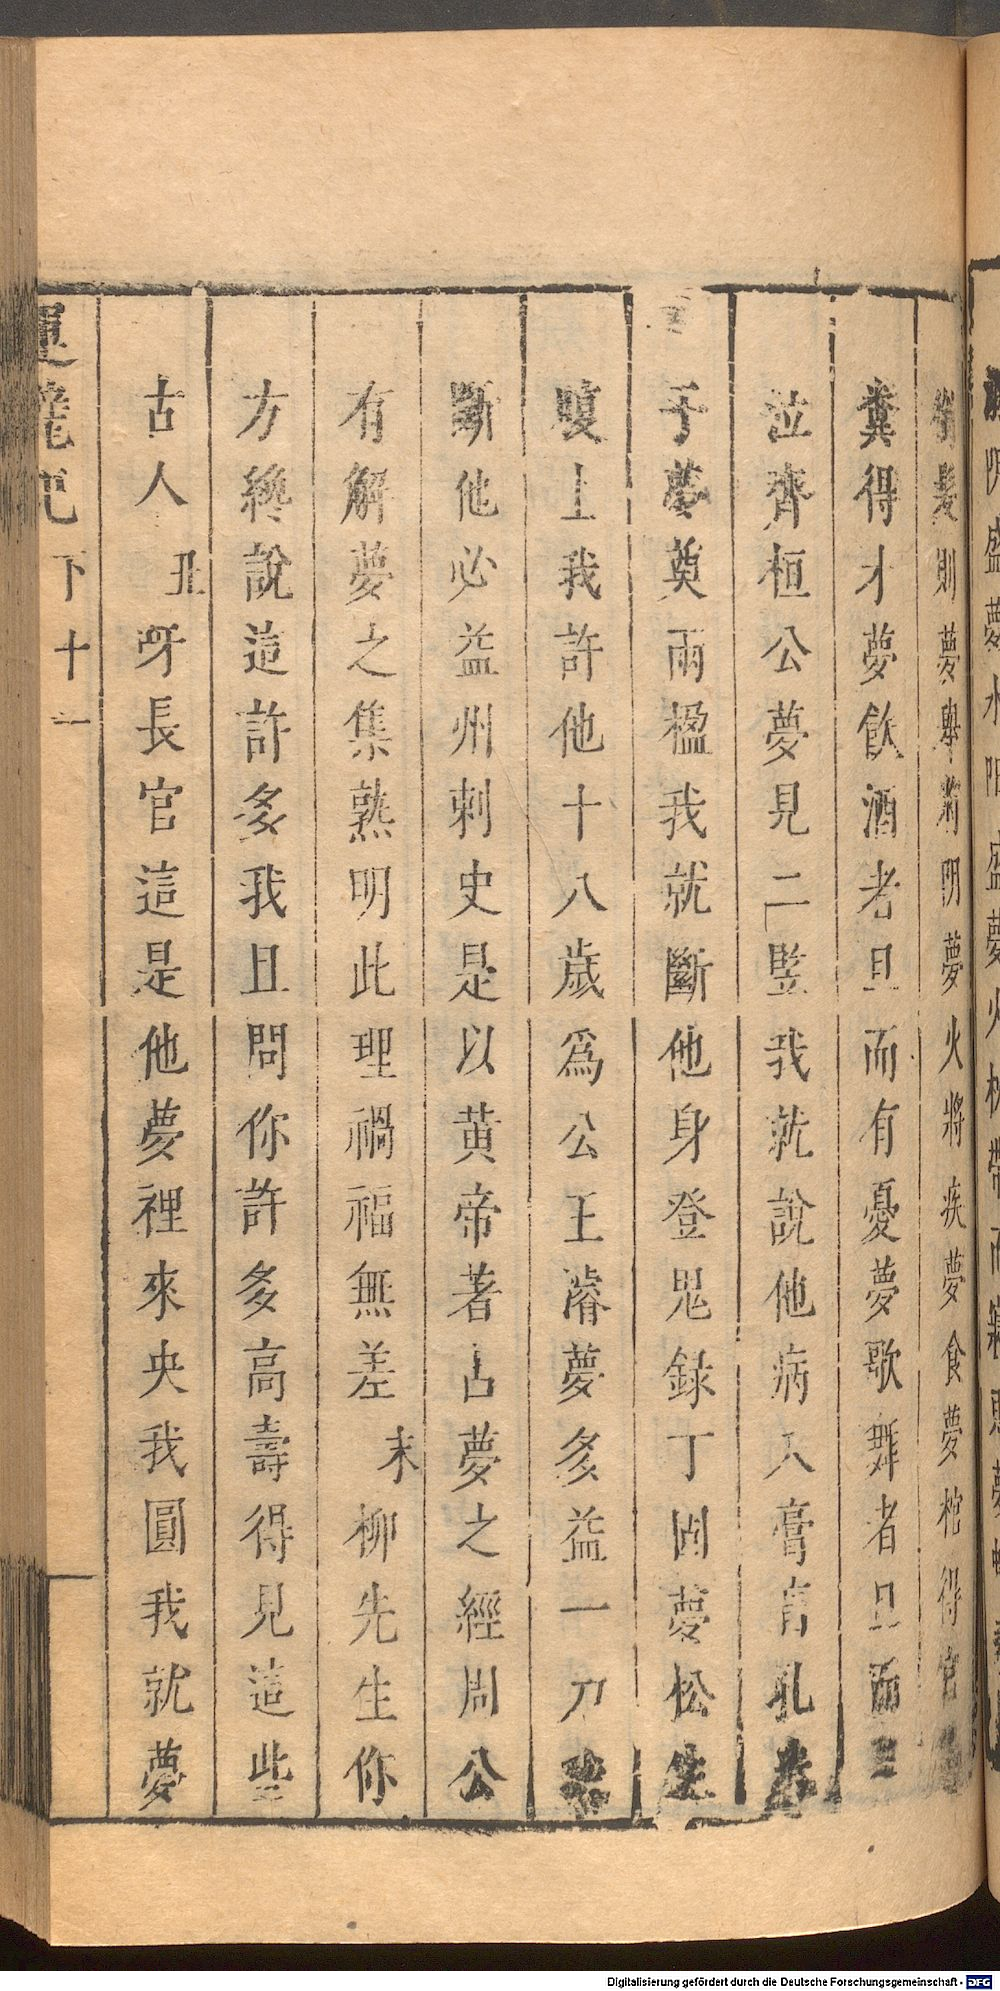 銜髮則夢舉將陰夢火將疾夢食夢棺得官夢
糞得才夢飲酒者旦而有憂夢歌舞者旦而
泣齊桓公夢見二監我就說他病入膏肓孔
子夢奠兩楹我就斷他身登鬼錄丁固夢松生
腹上我許他十八歲爲公王濬夢多益一刀
斷他必益州刺史是以黃帝著占夢之經周公
有解夢之集熟明此理禍福無差末柳先生你
方纔說這許多我且問你許多高壽得見這些
古人丑呀長官這是他夢裡來央我圓我就夢
下十一
Digitalisierung gefördert durch die Deutsche Forschungsgemeinschaft - DFG